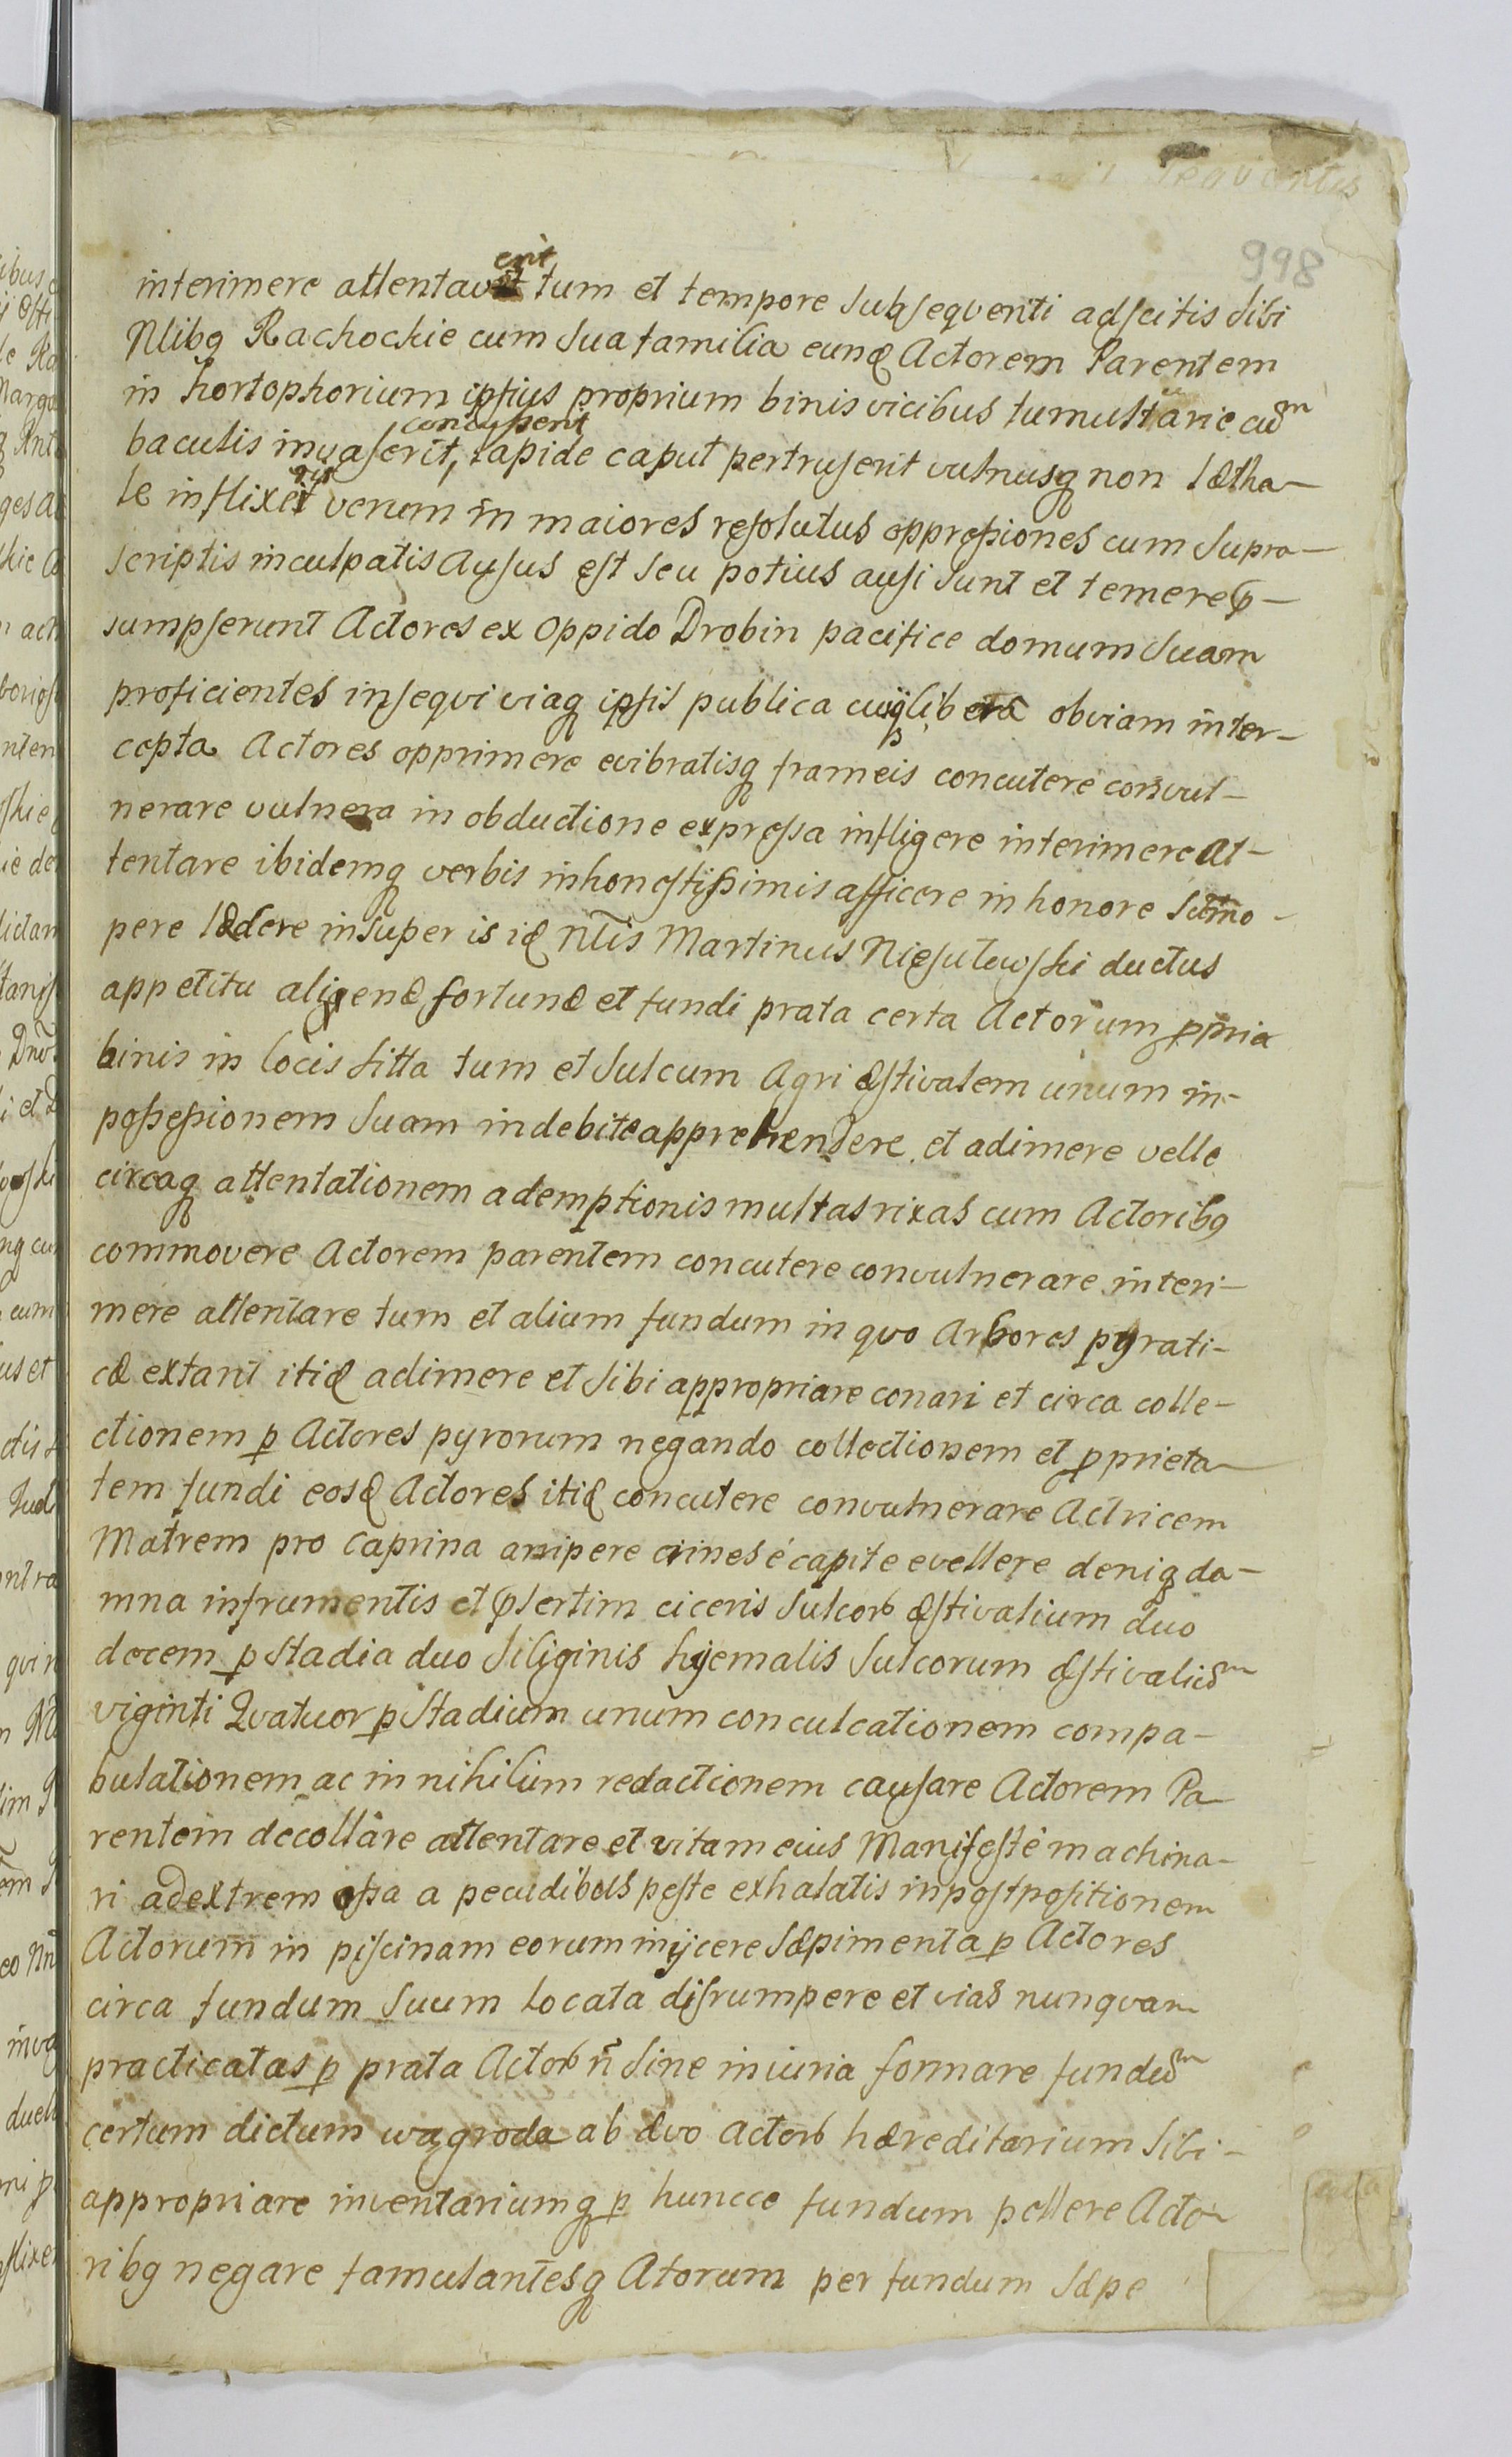 998
interimere attentaverit tum et tempore subsequenti adscitis sibi
Nlibq Rachockie cum sua familia eundē Actorem Parentem
in hortophorium ipsius proprium binis vicibus tumultarie cum
concusserit
baculis invaserit, lapide caput pertruserit vulnusq non lætha–
le inflixerit verum in maiores resolutus oppressiones cum supra–
scriptis inculpatis Ausus est seu potius ausi sunt et temere p̄–
sumpserunt Actores ex Oppido Drobin pacifice domum suam
proficientes insequi viaq ipsis publica cuiqlibera obviam inter–
cepta Actores opprimere evibratisq frameis concutere convul–
nerare vulnera in obductione expressa infligere interimere at–
tentare ibidemq verbis inhonestissimis afficere in honore sūmo–
pere lædere insuper is idē Nlis Martinus Niesułowski ductus
appetitu aligenæ fortunæ et fundi prata certa Actorum ppria
binis in locis sitta tum et sulcum Agri æstivalem unum in–
possessionem suam indebite apprehendere et adimere velle
circaq attentationem ademptionis multas rixas cum Actoribq
commovere Actorem parentem concutere convulnerare interi–
mere attentare tum et alium fundum in quo Arbores pyrati–
cæ extant itidē adimere et sibi appropriare conari et circa colle–
ctionem p Actores pyrorum negando collectionem et pprieta–
tem fundi eosdē Actores itidē concutere convulnerare Actricem
Matrem pro Caprina arripere crines é capite evellere deniq da–
mna in frumentis et p̄sertim ciceris sulcorb æstivalium duo
decem p stadia duo siliginis hyemalis sulcorum æstivalium
viginti Qvatuor p stadium unum conculcationem compa–
bulationem ac in nihilum redactionem causare Actorem Pa–
rentem decollare attentare et vitam eius Manifesté machina–
ri ad extrem ossa a pecudibus peste exhalatis in postpositionem
Actorum in piscinam eorum inijcere sæpimenta p Actores
circa fundum suum locata disrumpere et vias nunqvam
practicatas p prata Actorb n̄ sine iniuria formare fundum
certum dictum wągroda ab ævo Actorb hæreditarium sibi–
appropriare inventariumq p huncce fundum pellere Acto–
ribq negare famulantesq Atorum per fundum sæpe